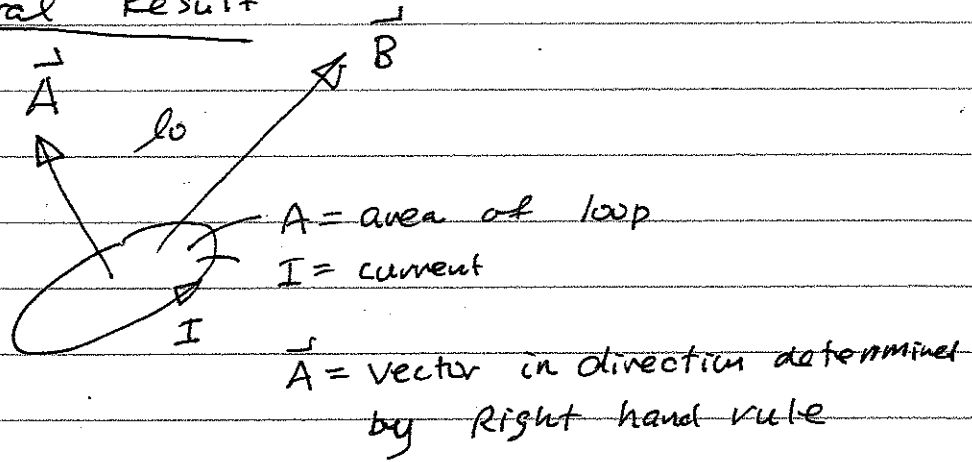 al Result
B
A
lo
A = area of loop
I = current
I
A = vector in direction determined
by Right hand rule